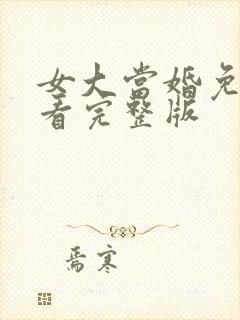 女大当婚免
看完整版
焉寒